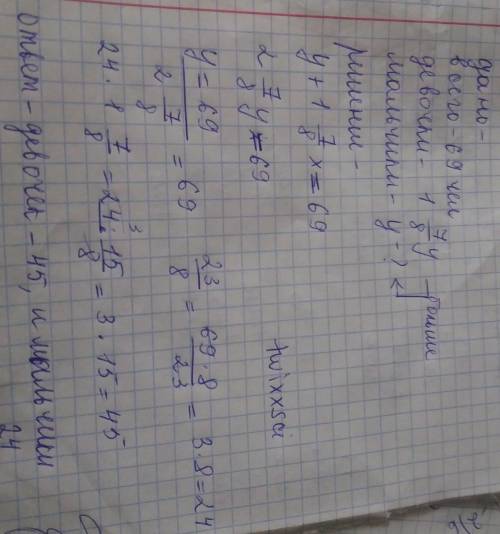 дано-
всего-69 чел
девочки- 1 7/8 y больше
мальчики- y-?
решение-
y+1 7/8 x=69
2 7/8 y=69
y = 69 / 2 7/8 = 69 23/8 = 69·8/23 = 3·8=24
24·1 7/8 = 24·15/8 = 3·15=45
Ответ-девочек-45, и мальчики
24
twixxsci
2/5